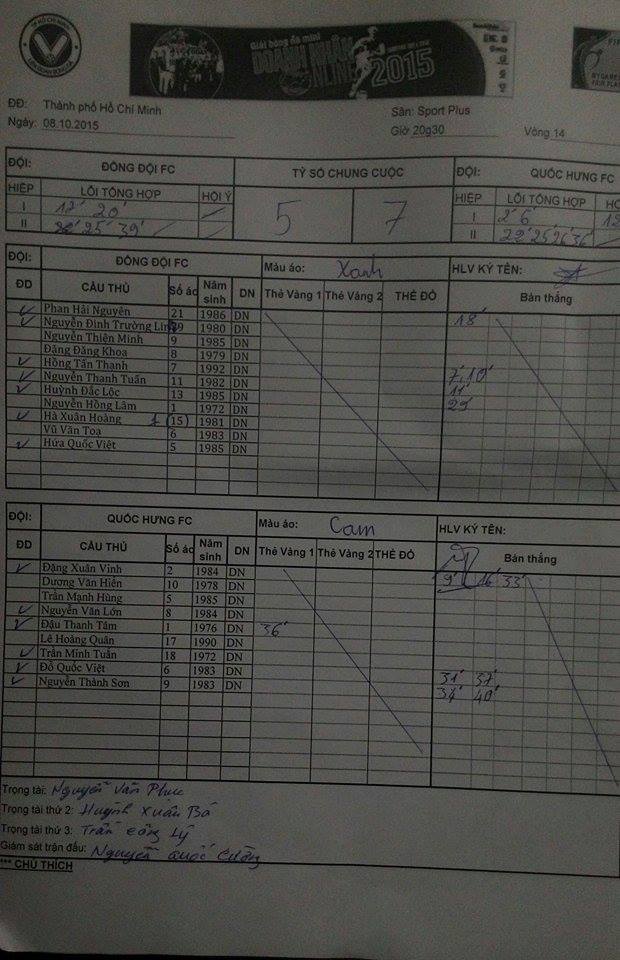 TP HỒ CHÍ MINH
LIÊN ĐOÀN BÓNG ĐÁ
Giải bóng đá mini
DOANH NHÂN
ONLINE 2015
FAIR PLAY
ĐĐ: Thành phố Hồ Chí Minh
Sân: Sport Plus
Ngày: 08.10.2015
Giờ 20g30
Vòng 14
ĐỘI: ĐỒNG ĐỘI FC TỶ SỐ CHUNG CUỘC ĐỘI: QUỐC HƯNG FC
HIỆP LỖI TỔNG HỢP HỘI Ý 5 7 HIỆP LỖI TỔNG HỢP
I 12' 20' I 2' 6' 12
II 25' 39' II 22' 25' 26' 36'
ĐỘI: ĐỒNG ĐỘI FC Màu áo: Xanh HLV KÝ TÊN:
ĐD CẦU THỦ Số áo Năm sinh DN Thẻ Vàng 1 Thẻ Vàng 2 THẺ ĐỎ Bàn thắng
Phan Hải Nguyên 21 1986 DN 18'
Nguyễn Đình Trường 1980 DN
Nguyễn Thiện Minh 9 1985 DN
Đặng Đăng Khoa 8 1979 DN
Hồng Tấn Thanh 7 1992 DN 7' 10'
Nguyễn Thanh Tuấn 11 1982 DN 11'
Huỳnh Đắc Lộc 13 1985 DN 29'
Nguyễn Hồng Lâm 1 1972 DN
Hà Xuân Hoàng 1 (15) 1981 DN
Vũ Văn Toạ 6 1983 DN
Hứa Quốc Việt 5 1985 DN
ĐỘI: QUỐC HƯNG FC Màu áo: Cam HLV KÝ TÊN:
ĐD CẦU THỦ Số áo Năm sinh DN Thẻ Vàng 1 Thẻ Vàng 2 THẺ ĐỎ Bàn thắng
Đặng Xuân Vinh 2 1984 DN 9' 16' 33'
Dương Văn Hiền 10 1978 DN
Trần Mạnh Hùng 5 1985 DN
Nguyễn Văn Lớn 8 1984 DN
Đậu Thanh Tâm 1 1976 DN 36'
Lê Hoàng Quân 17 1990 DN
Trần Minh Tuấn 18 1972 DN
Đỗ Quốc Việt 6 1983 DN 31' 37'
Nguyễn Thành Sơn 9 1983 DN 34' 40'
Trọng tài: Nguyễn Văn Phúc
Trọng tài thứ 2: Huỳnh Xuân Bá
Trọng tài thứ 3: Trần Công Lý
Giám sát trận đấu: Nguyễn Quốc Cường
*** CHÚ THÍCH